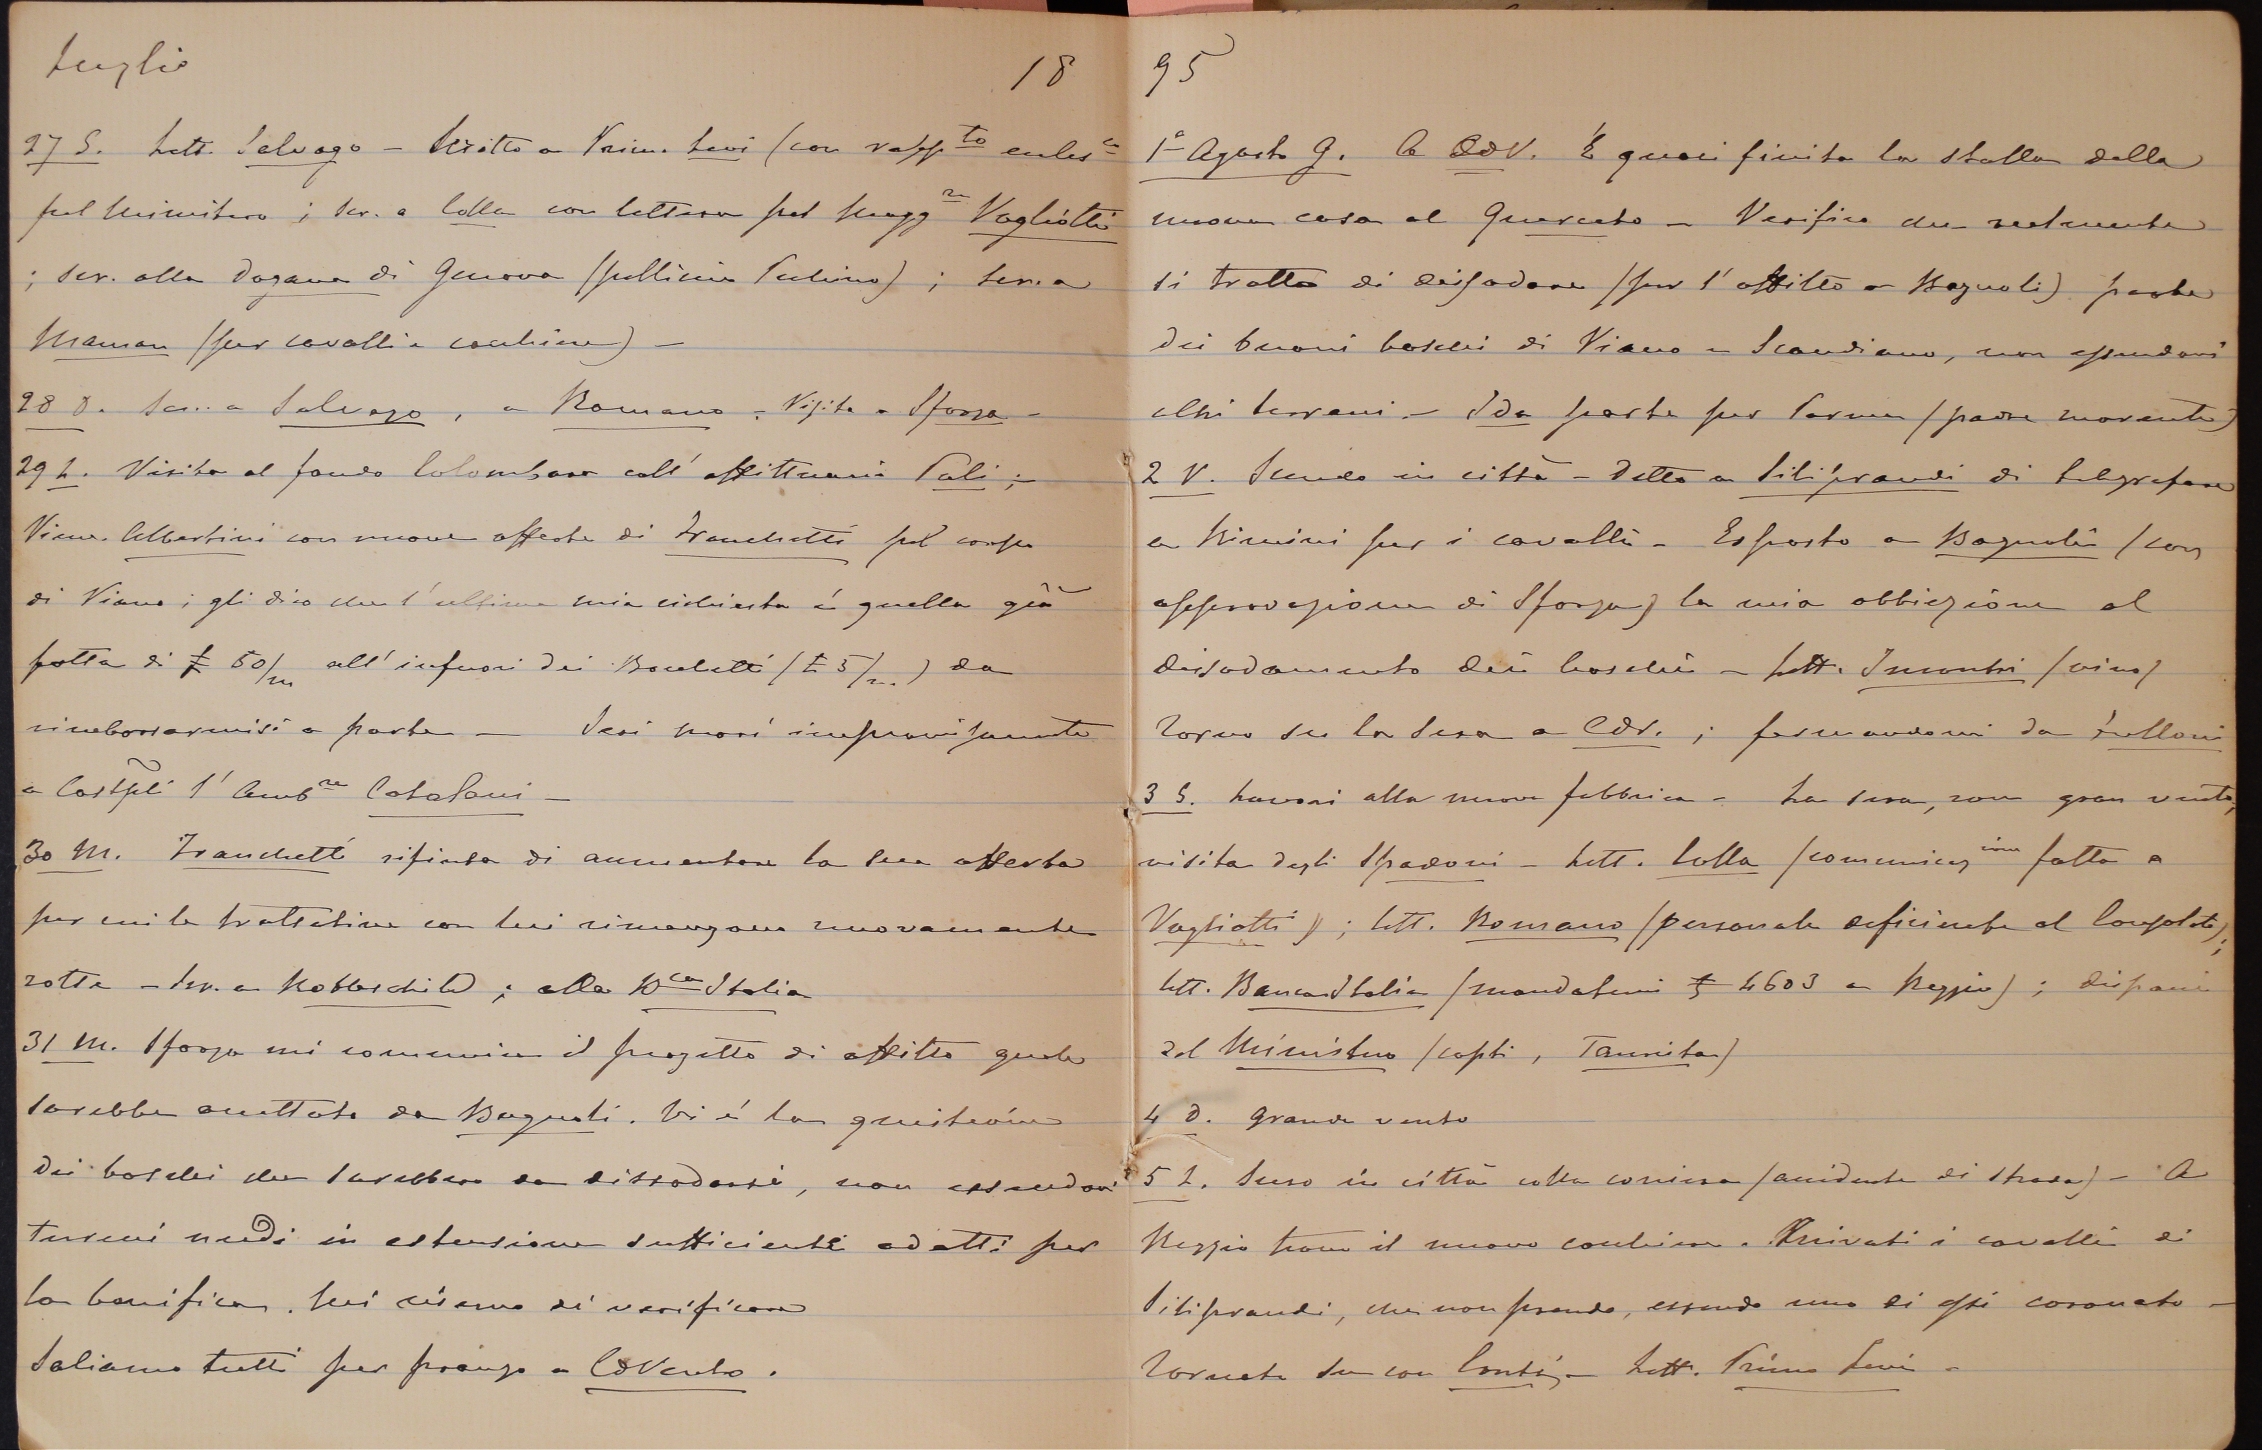 Luglio 18
27 S. Lett. Salvago - Scritto a Primo Levi (con rapp.to
pel Ministero ; scr. a Colla con lettera pel Magg.re Vagliotti
; scr. alla Dogana di Genova (pelliccie Pechino) ; scr. a
Maman (per cavalli e cocchiere) -
28 D. Scr. a Salvago, a Romano - Visita a Sforza -
29 L. Visita al fondo Colombaro coll' affittuario Pali ; -
Viene Albertini con nuove offerte di Franchetti pel corpo
di Viano ; gli dico che l'ultima mia richiesta è quella già
fatta di £ 50/m all' infuori dei Boschetti (£ 5/m.) da
rimborsarmisi a parte - Ieri morì improvvisamente
a Costpli l' Amb.re Catalani -
30 M. Franchetti rifiuta di aumentare la sua offerta
per cui le trattative con lui rimangono nuovamente
rotte - Scr. a ; alla B.ca Italia
31 M. Sforza mi comunica il progetto di affitto quale
sarebbe accettato da Bagnoli. Vi è la quistione
dei boschi che sarebbero da dissodarsi, non essendovi
terreni nudi in estensione sufficiente adatti per
la bonifica. Mi riservo di verificare
Saliamo tutti per pranzo a CdVento.
95
1° Agosto G. A CdV. È quasi finita la stalla della
nuova casa al Querceto - Verifico che realmente
si tratta di dissodare (per l'affitto a Bagnoli) parte
dei buoni boschi di Viano e Scandiano, non essendovi
altri terreni - Ida parte per Parma (padre morente)
2 V. Scendo in città - Detto a Siliprandi di telegrafare
a Rimini per i cavalli - Esposto a Bagnoli (con
approvazione di Sforza) la mia obbiezione al
dissodamento dei boschi - Lett. Incontri (vino)
Torno su la sera a CdV. ; fermandomi da Tulloni
3 S. Lavori alla nuova fabbrica - La sera, con gran vento,
visita degli Spadoni - Lett. Colla (comunicaz.ione fatta a
Vagliotti) ; lett. Romano (personale deficiente al Consolato) ;
lett. Banca Italia (mandatemi £ 4603 a Reggio) ; dispacci
del Ministero (copti, Taurita)
4 D. Grande vento
5 L. Scendo in città colla corriera (accidente di strada) - A
Reggio trovo il nuovo cocchiere. Arrivati i cavalli di
Siliprandi, che non prendo, essendo uno di essi coronato -
Tornato su con Conti, - Lett. Primo Levi -